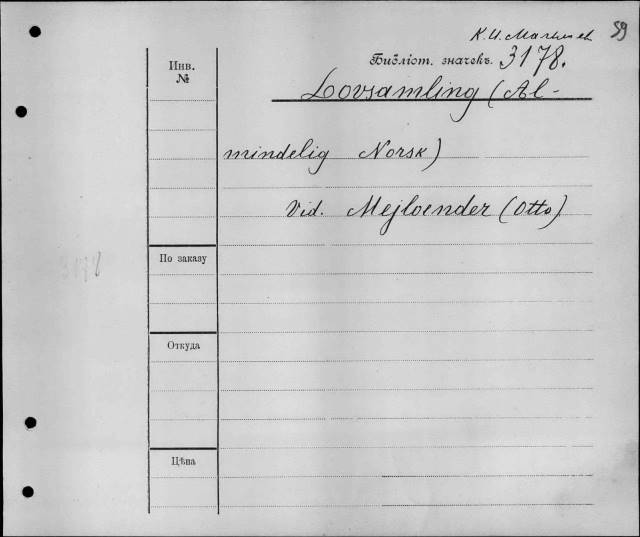 К. И. Малышев 59
Библіот. значекъ. 3178.
Инв.
№
Lovsamling (Al-
mindelig Norsk)
Vid. Mejloender (Otto)
По заказу
3178
Откуда
Цѣна